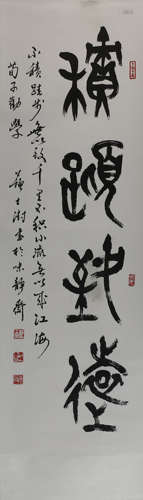 積跬致遠
不積跬步無以致千里不积小流無以成江海
荀子勸學
蘇士澍書於味靜齋